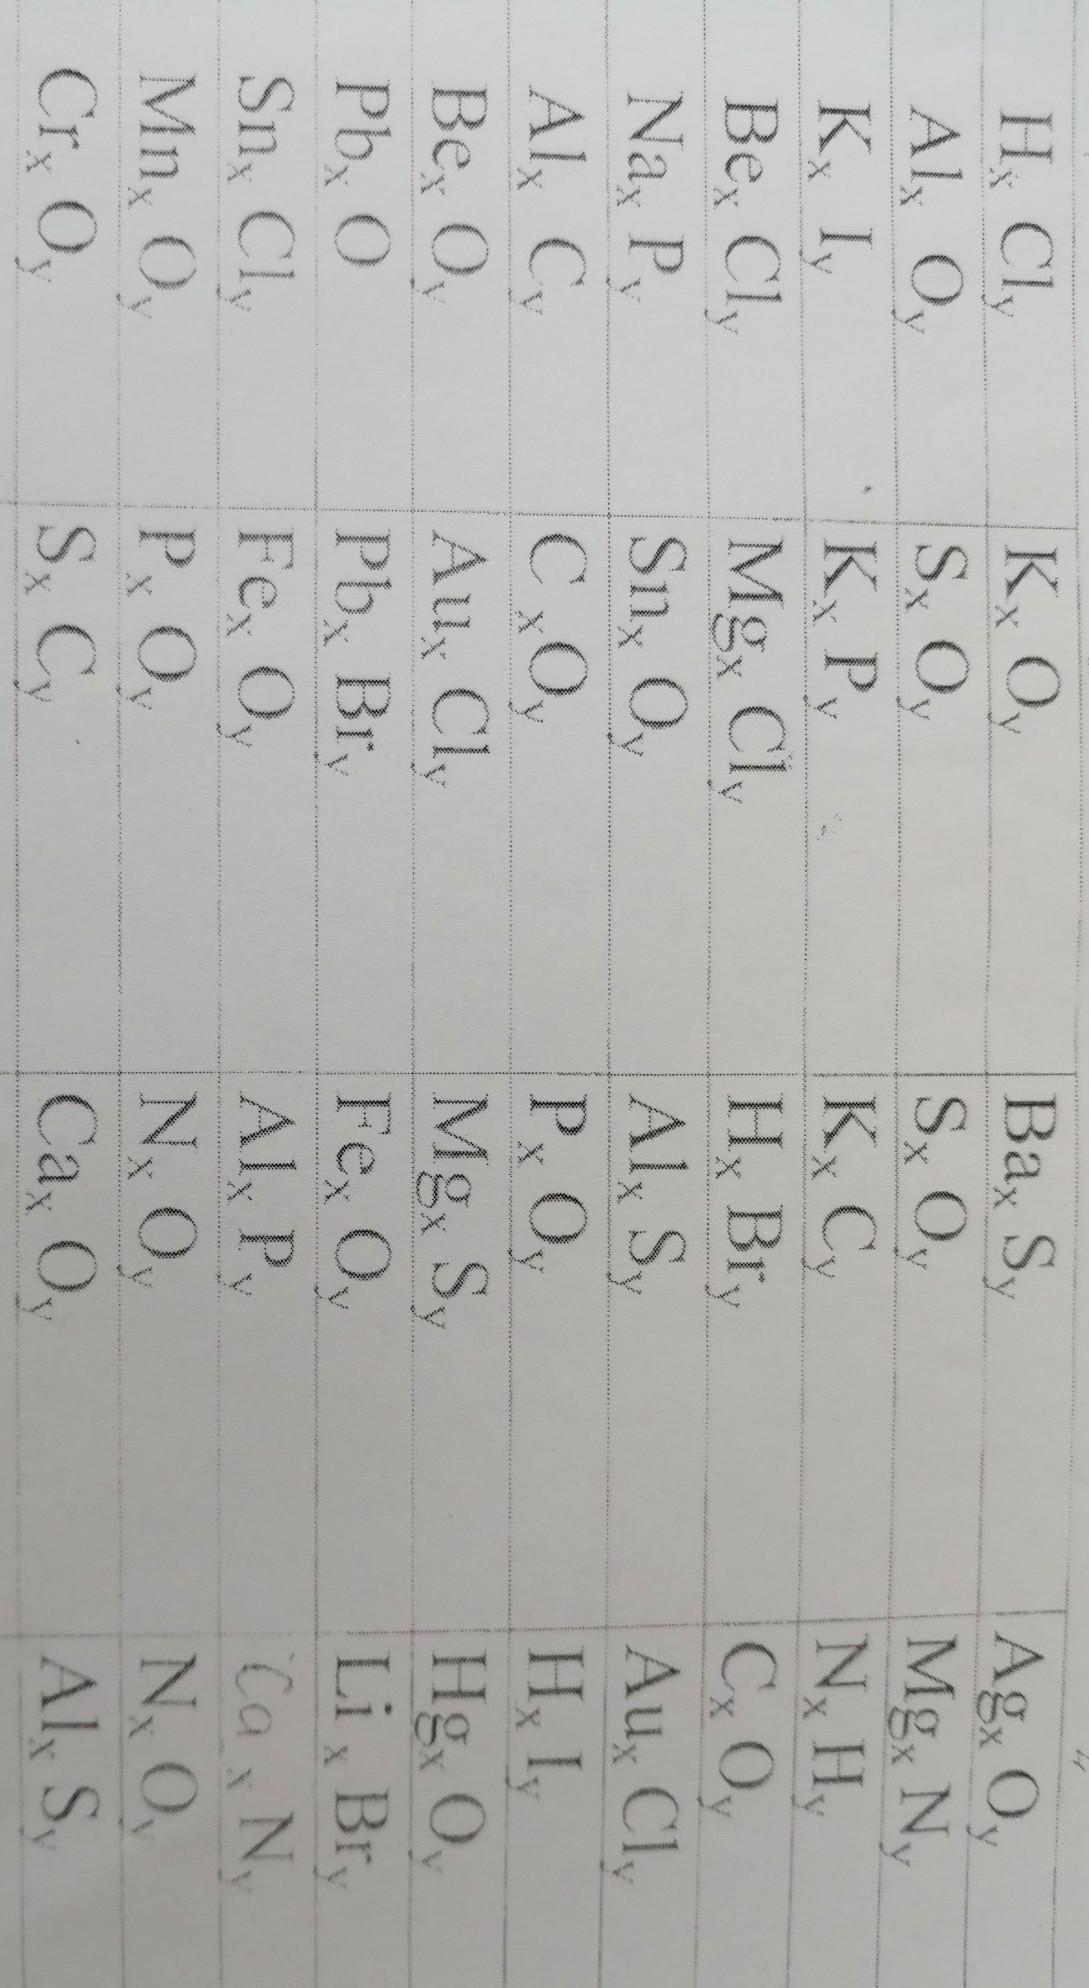 Hx Cly Kx Oy Bax Sy Agx Oy
Alx Oy Sx Oy Sx Oy Mgx Ny
Kx Iy Kx Py Kx Cy Nx Hy
Bex Cly Mgx Cly Hx Bry Cx Oy
Nax Py Snx Oy Alx Sy Aux Cly
Alx Cy Cx Oy Px Oy Hx Iy
Bex Oy Aux Cly Mgx Sy Hgx Oy
Pbx O Pbx Bry Fex Oy Lix Bry
Snx Cly Fex Oy Alx Py Cax Ny
Mnx Oy Px Oy Nx Oy Nx Oy
Crx Oy Sx Cy Cax Oy Alx Sy